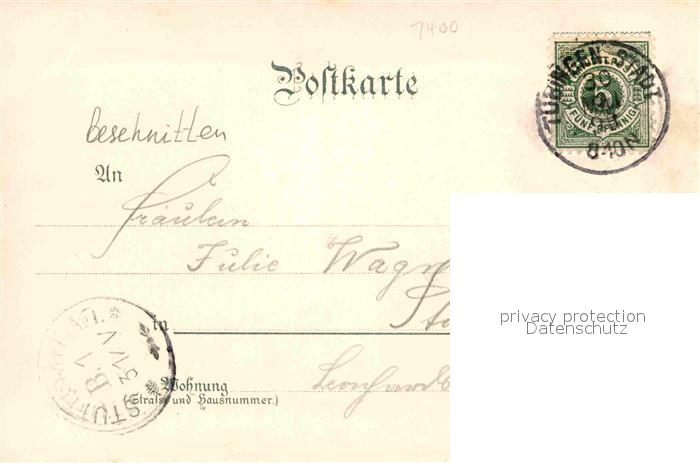 7400
Postkarte
TÜBINGEN STADT
5
FÜNF PFENNIG
8-10 N
beschnitten
An
Fräulein
Julie Wagn
in
privacy protection
Datenschutz
STUTTGART
B.1
31/V
Wohnung
(Straße und Hausnummer.)
Leonhards